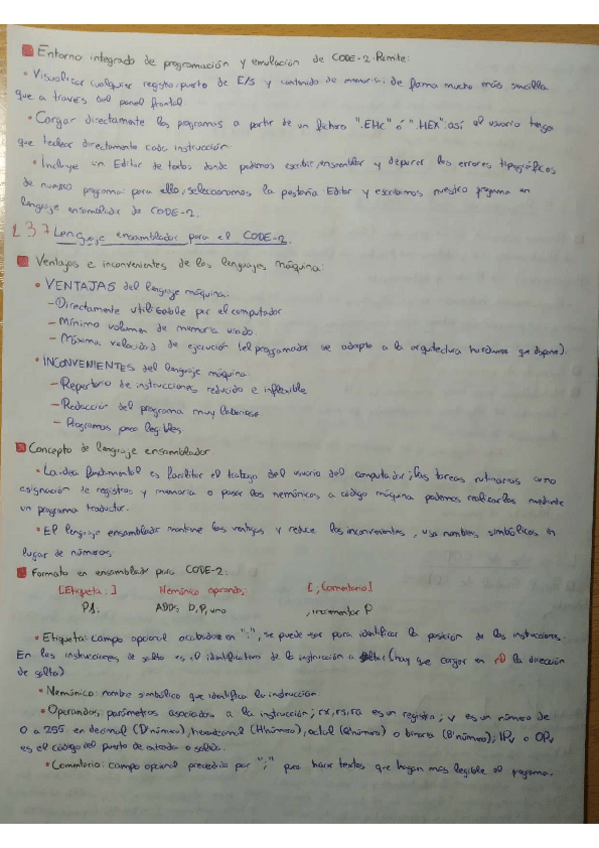 Entorno integrado de programación y emulación de CODE-2. Permite:
• Visualizar cualquier registro, puerto de E/S y contenido de memoria: de forma mucho más sencilla
que a través del panel frontal
• Cargar directamente los programas a partir de un fichero ".EHC" ó ".HEX": así el usuario tenga
que teclear directamente cada instrucción
• Incluye un Editor de textos donde podemos escribir, ensamblar y depurar los errores tipográficos
de nuestro programa: para ello, seleccionamos la pestaña Editor y escribimos nuestro programa en
lenguaje ensamblador de CODE-2.
Lenguaje ensamblador para el CODE-2.
Ventajas e inconvenientes de los lenguajes máquina:
• VENTAJAS del lenguaje máquina:
- Directamente utilizable por el computador
- Mínimo volumen de memoria usado
- Máxima velocidad de ejecución (el programador se adapta a la arquitectura hardware que dispone).
• INCONVENIENTES del lenguaje máquina:
- Repertorio de instrucciones reducido e inflexible
- Redacción del programa muy laboriosa
- Programas poco legibles
Concepto de lenguaje ensamblador
• La idea fundamental es facilitar el trabajo del usuario del computador; las tareas rutinarias como
asignación de registros y memoria o pasar los nemónicos a código máquina podemos realizarlas mediante
un programa traductor.
• El lenguaje ensamblador mantiene las ventajas y reduce los inconvenientes, usa nombres simbólicos en
lugar de números.
Formato en ensamblador para CODE-2:
[Etiqueta:] Nemónico operando; [; Comentario]
P1: ADDS D,P,uno ; incrementar P
• Etiqueta: campo opcional acabado en ":", se puede usar para identificar la posición de las instrucciones.
En las instrucciones de salto es el identificativo de la instrucción a saltar (hay que cargar en rD la dirección
de salto)
• Nemónico: nombre simbólico que identifica la instrucción.
• Operandos: parámetros asociados a la instrucción; rx, rs, ra es un registro; v es un número de
0 a 255 en decimal (D'número), hexadecimal (H'número), octal (Q'número) o binario (B'número); IPv o OPv
es el código del puerto de entrada o salida.
• Comentario: campo opcional precedido por ";" para hacer textos que hagan más legible el programa.